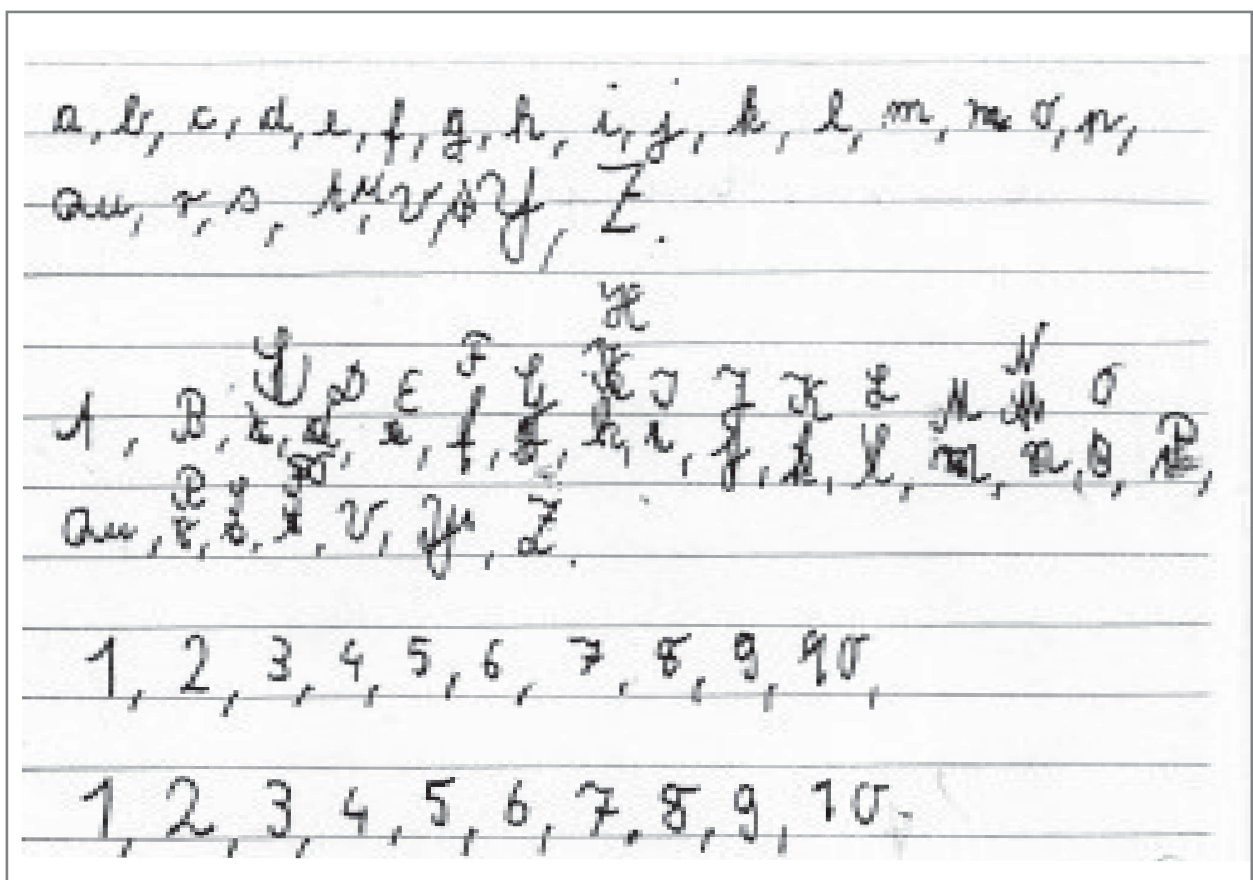 a, b, c, d, e, f, g, h, i, j, k, l, m, n o, p,
qu, r, s, t, u, v, y, Z.
H
L D E F G K I J K L M N O
A, B, c, d, e, f, g, h, i, j, k, l, m, n, o, P,
Qu, r, s, t, v, y, Z.
1, 2, 3, 4, 5, 6, 7, 8, 9, 10,
1, 2, 3, 4, 5, 6, 7, 8, 9, 10.